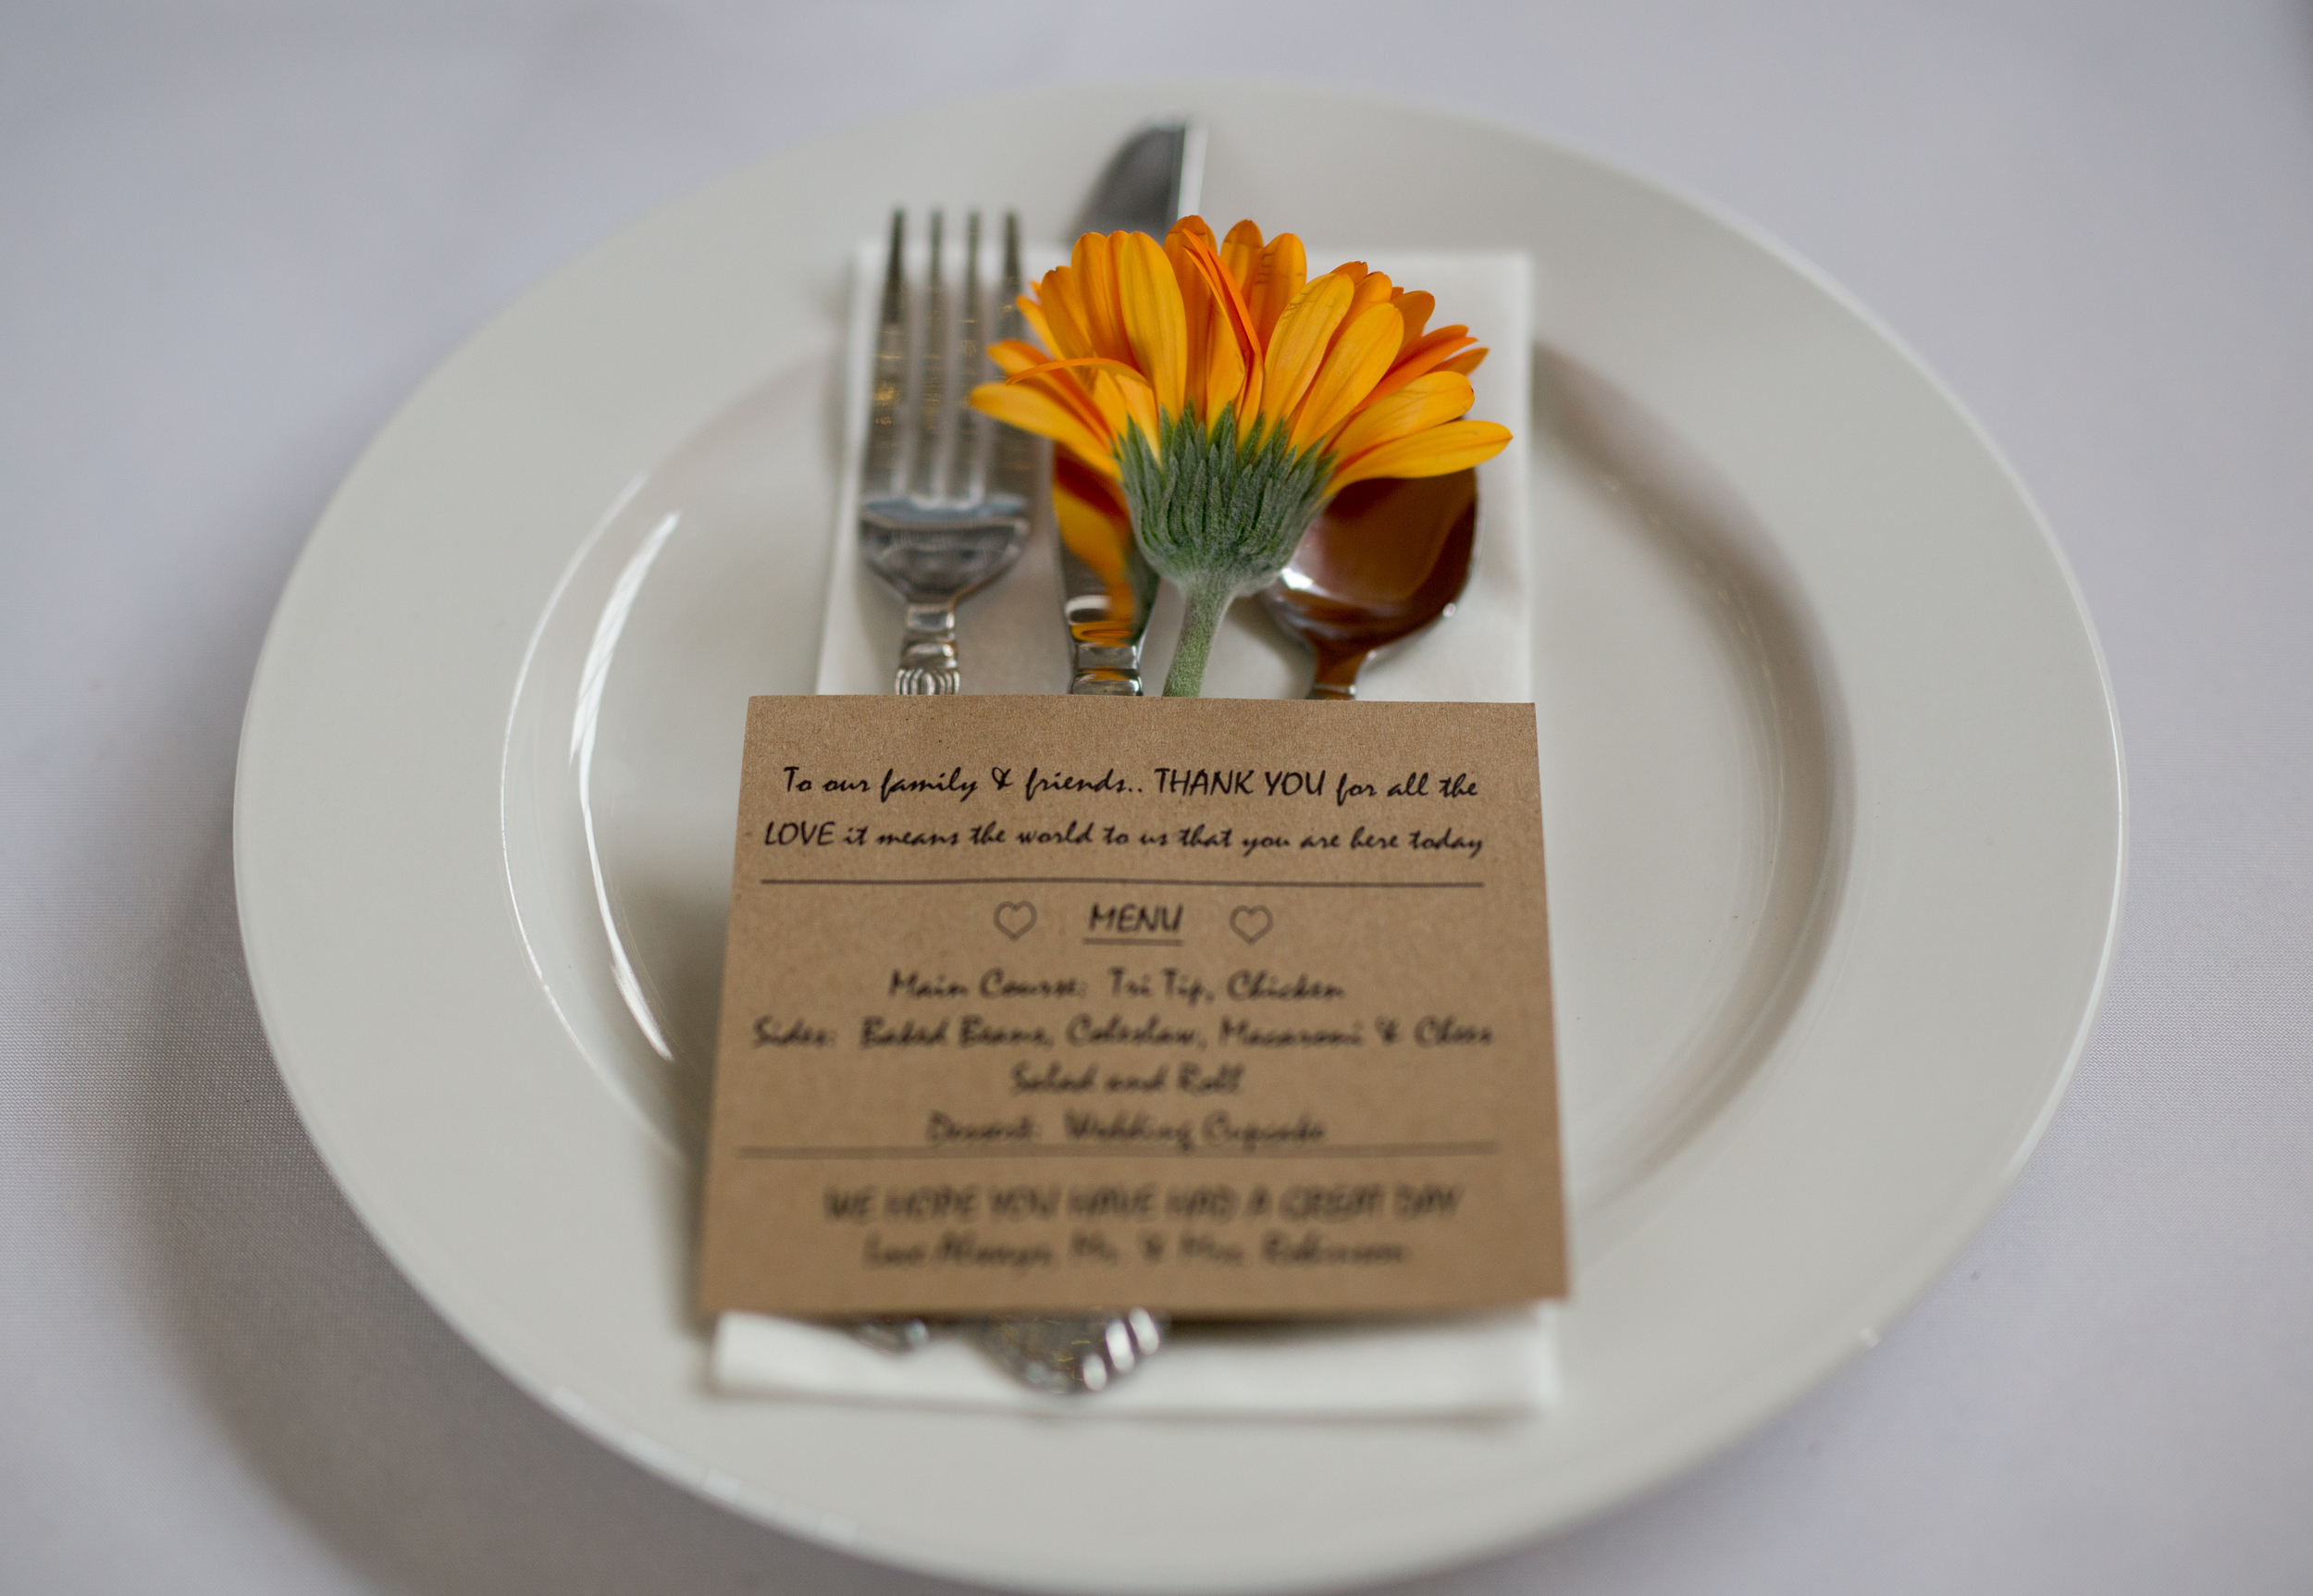 To our family & friends.. THANK YOU for all the
LOVE it means the world to us that you are here today
MENU
Main Course: Tri Tip, Chicken
Sides: Baked Beans, Coleslaw, Macaroni & Chees
Salad and Roll
Dessert: Wedding Cupcake
WE HOPE YOU HAVE HAD A GREAT DAY
Love Always, Mr. & Mrs. Robinson